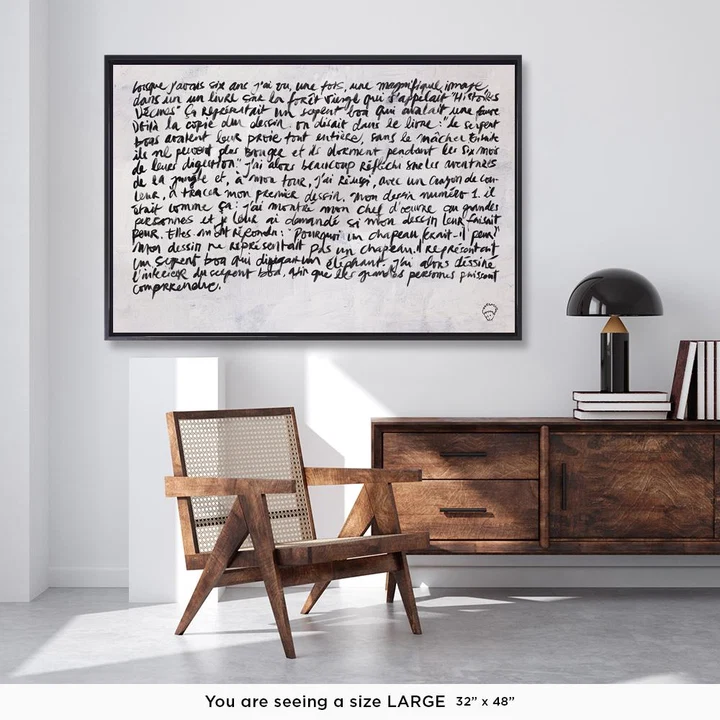 Lorsque j'avais six ans j'ai vu, une fois, une magnifique image,
dans un un livre sur la forêt vierge qui s'appelait "Histoires
Vécues" ça représentait un serpent boa qui avalait une fauve
Voilà la copie du dessin. on disait dans le livre: "le serpent
boas avalent leur proie tout entière, sans la mâcher. Ensuite
ils ne peuvent plus bouger et ils dorment pendant les six mois
de leurs digestion" j'ai alors beaucoup réfléchi sur les aventures
de la jungle et, à mon tour, j'ai réussi, avec un crayon de cou-
leur, à tracer mon premier dessin. mon dessin numéro 1. il
était comme ça: j'ai montré mon chef d'œuvre au grandes
personnes et je leur ai demandé si mon dessin leur faisait
peur. Elles m'ont répondu: "Pourquoi un chapeau ferait-il peur"
mon dessin ne représentait pas un chapeau. Il représentait
un serpent boa qui digérait un éléphant. j'ai alors dessiné
l'intérieur du serpent boa, afin que les grandes personnes puissent
comprendre.
You are seeing a size LARGE 32" x 48"